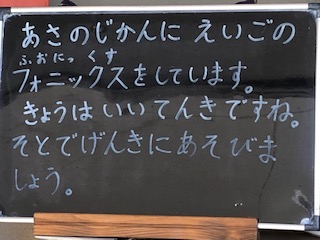 あさのじかんに えいごの
ふぉにっくす
フォニックスをしています。
きょうは いい てんきですね。
そとでげんきにあそびま
しょう。